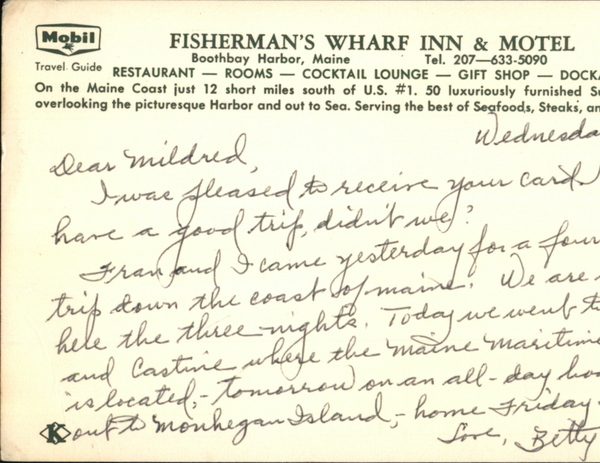 Mobil
Travel Guide
FISHERMAN'S WHARF INN & MOTEL
Boothbay Harbor, Maine Tel. 207—633-5090
RESTAURANT — ROOMS — COCKTAIL LOUNGE — GIFT SHOP — DOCKA
On the Maine Coast just 12 short miles south of U.S. #1. 50 luxuriously furnished Su
overlooking the picturesque Harbor and out to Sea. Serving the best of Seafoods, Steaks, an
Wednesda
Dear Mildred,
I was pleased to receive your card.
have a good trip, didn't we?
Fran and I came yesterday for a four
trip down the coast of maine. We are
here the three nights. Today we went to
and Castine where the Maine Maritime
is located,- tomorrow on an all-day boa
out to Monhegan Island,- home Friday-
Love, Betty
K